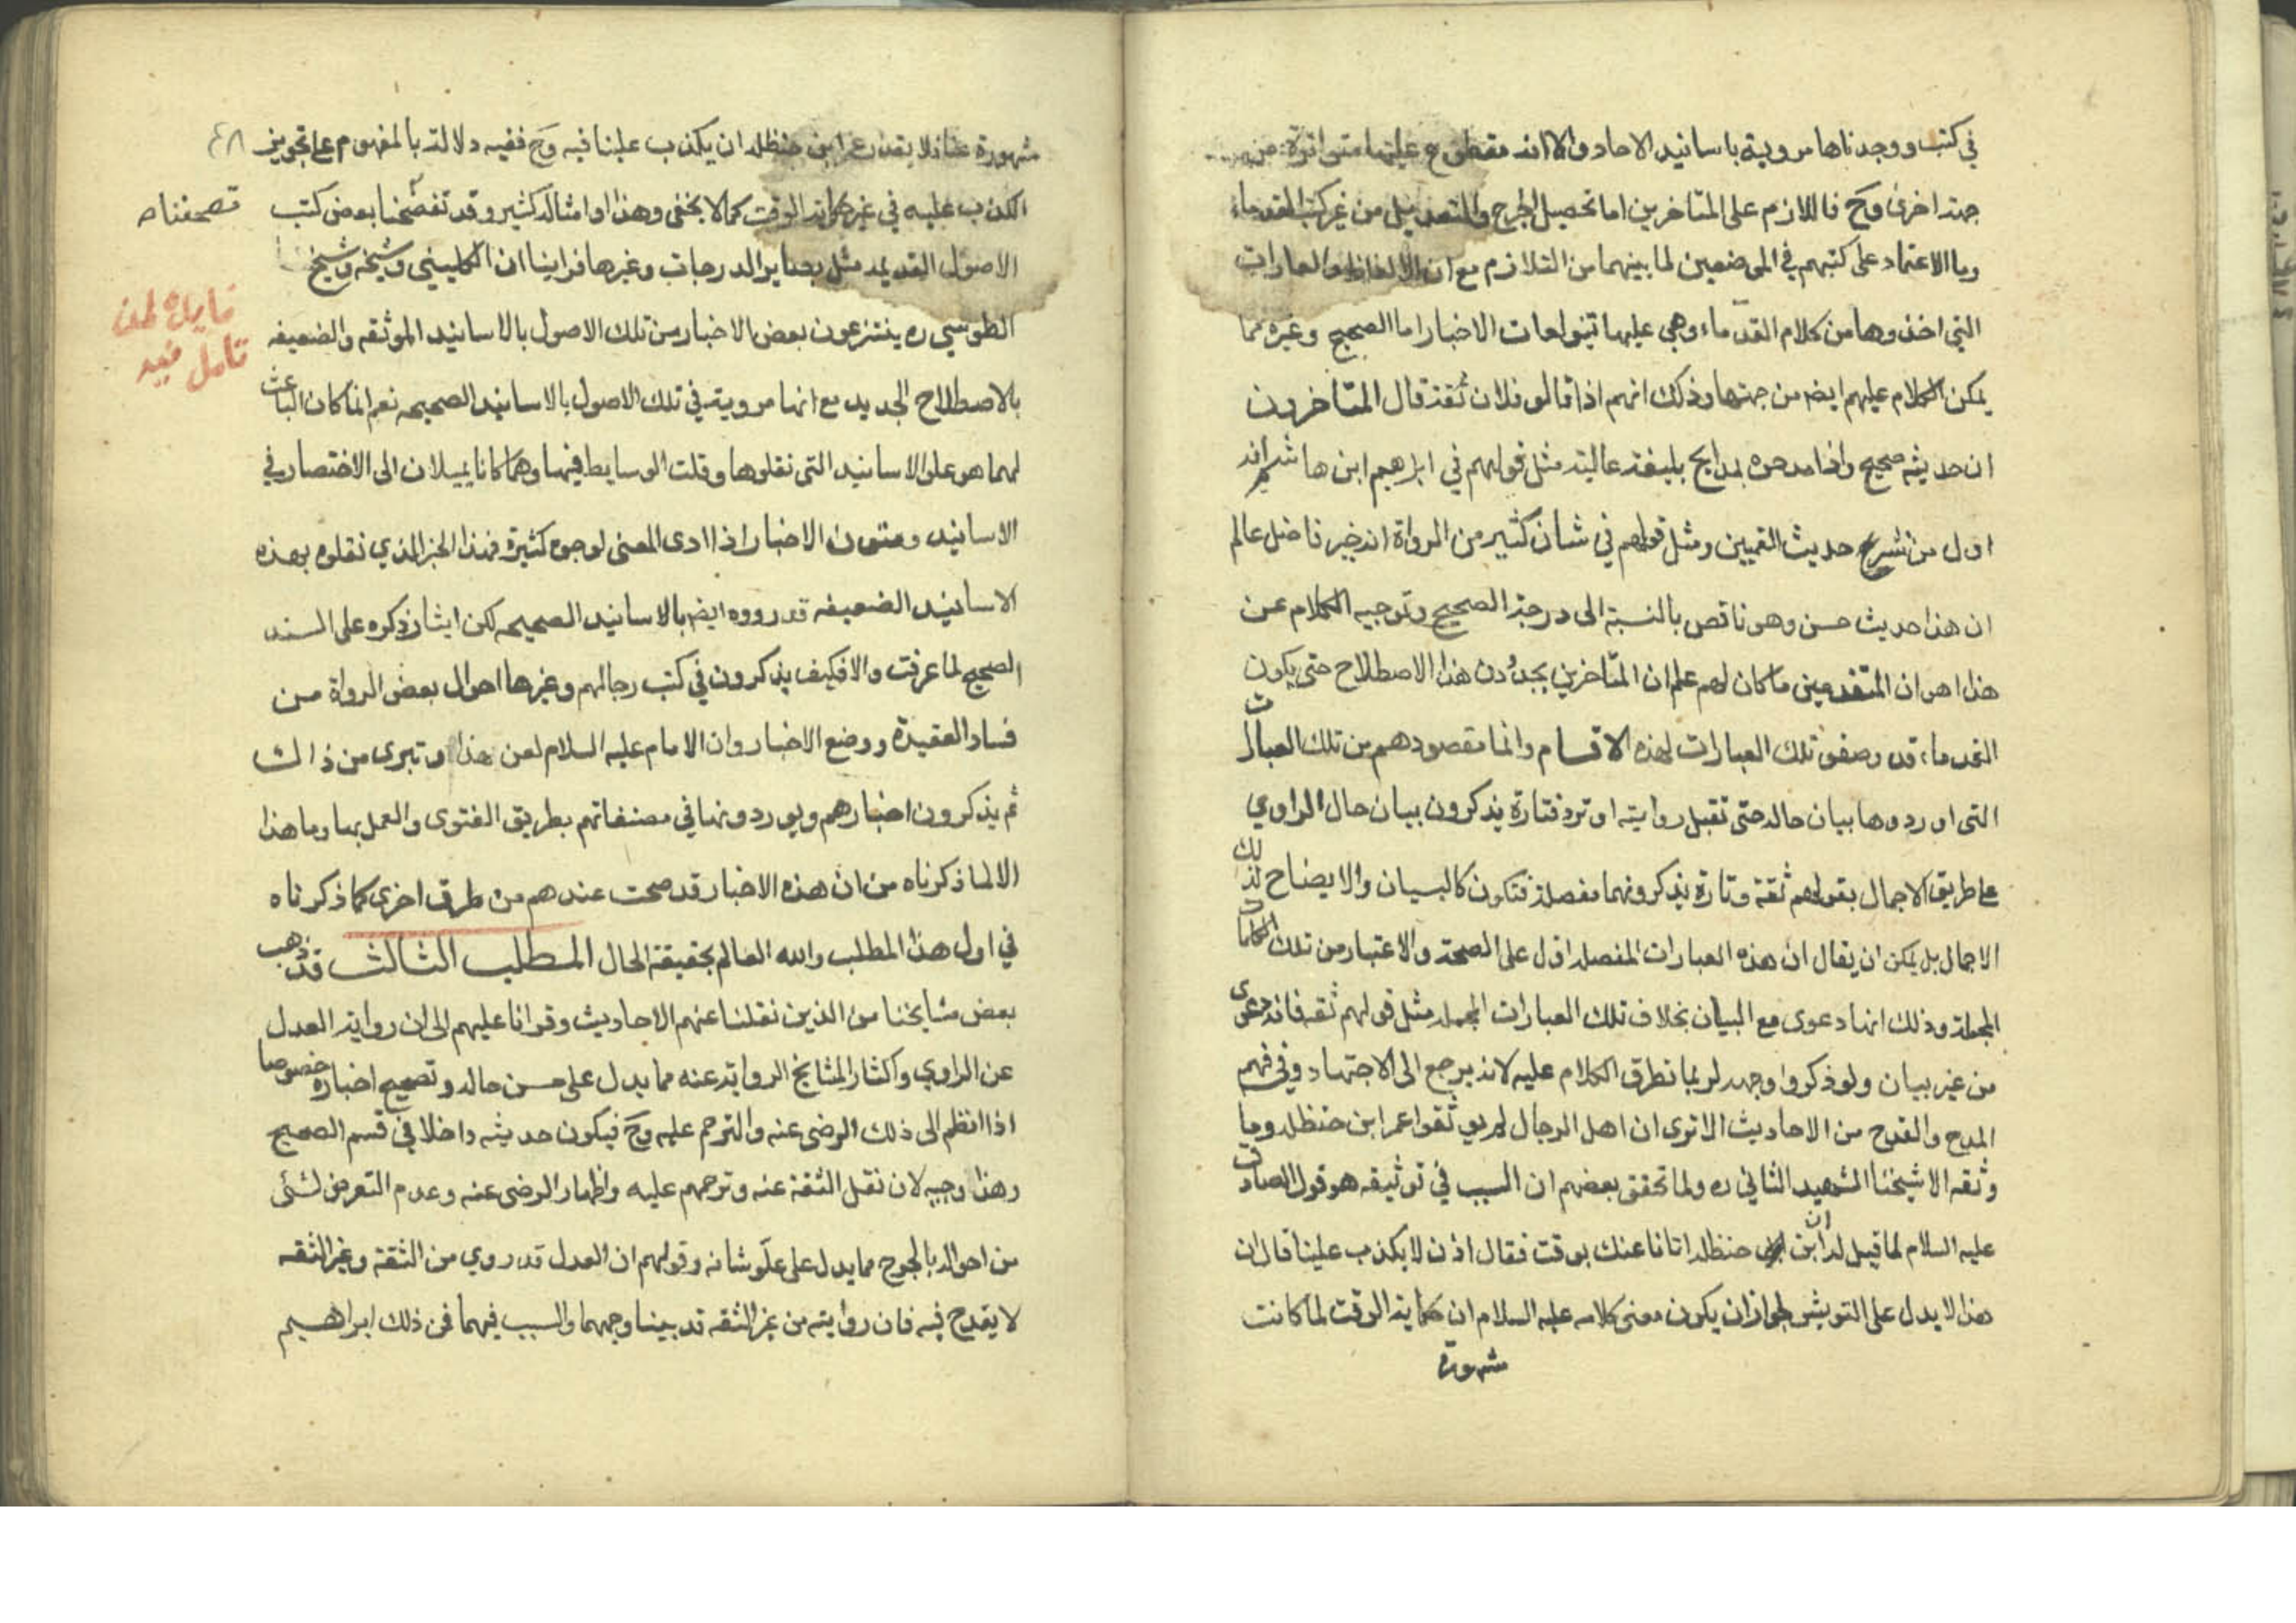 في كتب ووجدناها مروية باسانيد الاحاد والا انه مقطوع عليها متواترة من
جهة اخرى وح فاللازم على المتاخرين اما تحصيل الجرح والتعديل من غير كتب القدماء
وما الاعتماد على كتبهم في الموضعين لما بينهما من التلازم مع ان الالفاظ والعبارات
التي اخذوها من كلام القدماء وهي عليها تنويعات الاخبار اما الصحيح وغيره مما
يمكن الكلام عليهم ايضا من جهتها وذلك انهم اذا قالو فلان ثقة قال المتاخرون
ان حديثه صحيح واذا مدحوه بمدايح بليغة عالية مثل قولهم في ابراهيم ابن هاشم انه
اول من نشر حديث القميين ومثل قولهم في شان كثير من الرواة انه خير فاضل عالم
ان هذا حديث حسن وهو ناقص بالنسبة الى درجة الصحيح وتوجيه الكلام عن
هذا هو ان المتقدمين ما كان لهم علم ان المتاخرين يجددون هذا الاصطلاح حتى يكون
القدماء قد وصفو تلك العبارات لهذه الاقسام وانما مقصودهم من تلك العبارات
التى اوردوها بيان حاله حتى تقبل روايته او ترد فتارة يذكرون بيان حال الراوي
على طريق الاجمال بقولهم ثقة وتارة يذكرونها مفصلة فتكون كالبيان والايضاح لذلك
الاجمال بل يمكن ان يقال ان هذه العبارات المفصله ادل على الصحة والاعتبار من تلك الكلمات
المجملة وذلك انها دعوى مع البيان بخلاف تلك العبارات المجمله مثل قولهم ثقه فانه دعوى
من غير بيان ولو ذكروا وجهه لربما تطرق الكلام عليه لانه يرجع الى الاجتهاد وفي فهم
المدح والقدح من الاحاديث الا ترى ان اهل الرجال لم يوثقوا عمر ابن حنظله وما
وثقه الا شيخنا الشهيد الثاني ره ولما تحقق بعضهم ان السبب في توثيقه هو قول الصادق
عليه السلام لما قيل له ان ابن حنظله اتانا عنك بوقت فقال اذن لا يكذب علينا قال ان
هذا لا يدل على التوثيق لجواز ان يكون معنى كلامه عليه السلام ان حكاية الوقت لما كانت
شهورة
٤٨
مشهورة عنا فلا يقدر عمر ابن حنظله ان يكذب علينا فيه وح ففيه دلالة بالمفهوم على تجويز
الكذب عليه في غير حكاية الوقت كما لا يخفى وهذا وامثاله كثير وقد تفحصنا بعض كتب
تصحفناه
الاصول القديمه مثل بصاير الدرجات وغيرها فراينا ان الكليني وشيخه وشيخ
الطوسي ره ينتزعون بعض الاخبار من تلك الاصول بالاسانيد الموثقه والضعيفه
تامل فيه
بالاصطلاح الجديد مع انها مروية في تلك الاصول بالاسانيد الصحيحه نعم انما كان الباعث
لهما هو علو الاسانيد التى نقلوها وقلت الوسايط فيها وهما كانا يميلان الى الاختصار في
الاسانيد ومتون الاخبار اذا ادى المعنى لوجوه كثيرة فهذا الخبر الذي نقلوه بهذه
الاسانيد الضعيفه قد رووه ايضا بالاسانيد الصحيحه لكن ايثار ذكره على السند
الصحيح لما عرفت والا فكيف يذكرون في كتب رجالهم وغيرها احوال بعض الرواة من
فساد العقيدة ووضع الاخبار وان الامام عليه السلام لعن هذا وتبرى من ذالك
ثم يذكرون اخبارهم ويوردونها في مصنفاتهم بطريق الفتوى والعمل بها وما هذا
الا لما ذكرناه من ان هذه الاخبار قد صحت عندهم من طرق اخرى كما ذكرناه
في اول هذا المطلب والله العالم بحقيقة الحال المطلب الثالث قد ذهب
بعض مشايخنا من الذين نقلنا عنهم الاحاديث وقرانا عليهم الى ان رواية العدل
عن الراوي واكثار المشايخ الرواية عنه مما يدل على حسن حاله وتصحيح اخباره خصوصا
اذا انظم الى ذلك الرضى عنه والترحم عليه وح فيكون حديثه داخلا في قسم الصحيح
وهذا وجيه لان نقل الثقة عنه وترحمهم عليه واظهار الرضى عنه وعدم التعرض لشئى
من احواله بالجرح مما يدل على علو شانه وقولهم ان العدل قد روي من الثقة وغير الثقه
لا يقدح فيه فان روايته من غير الثقه قد بينا وجهها والسبب فيها فمن ذلك ابراهيم